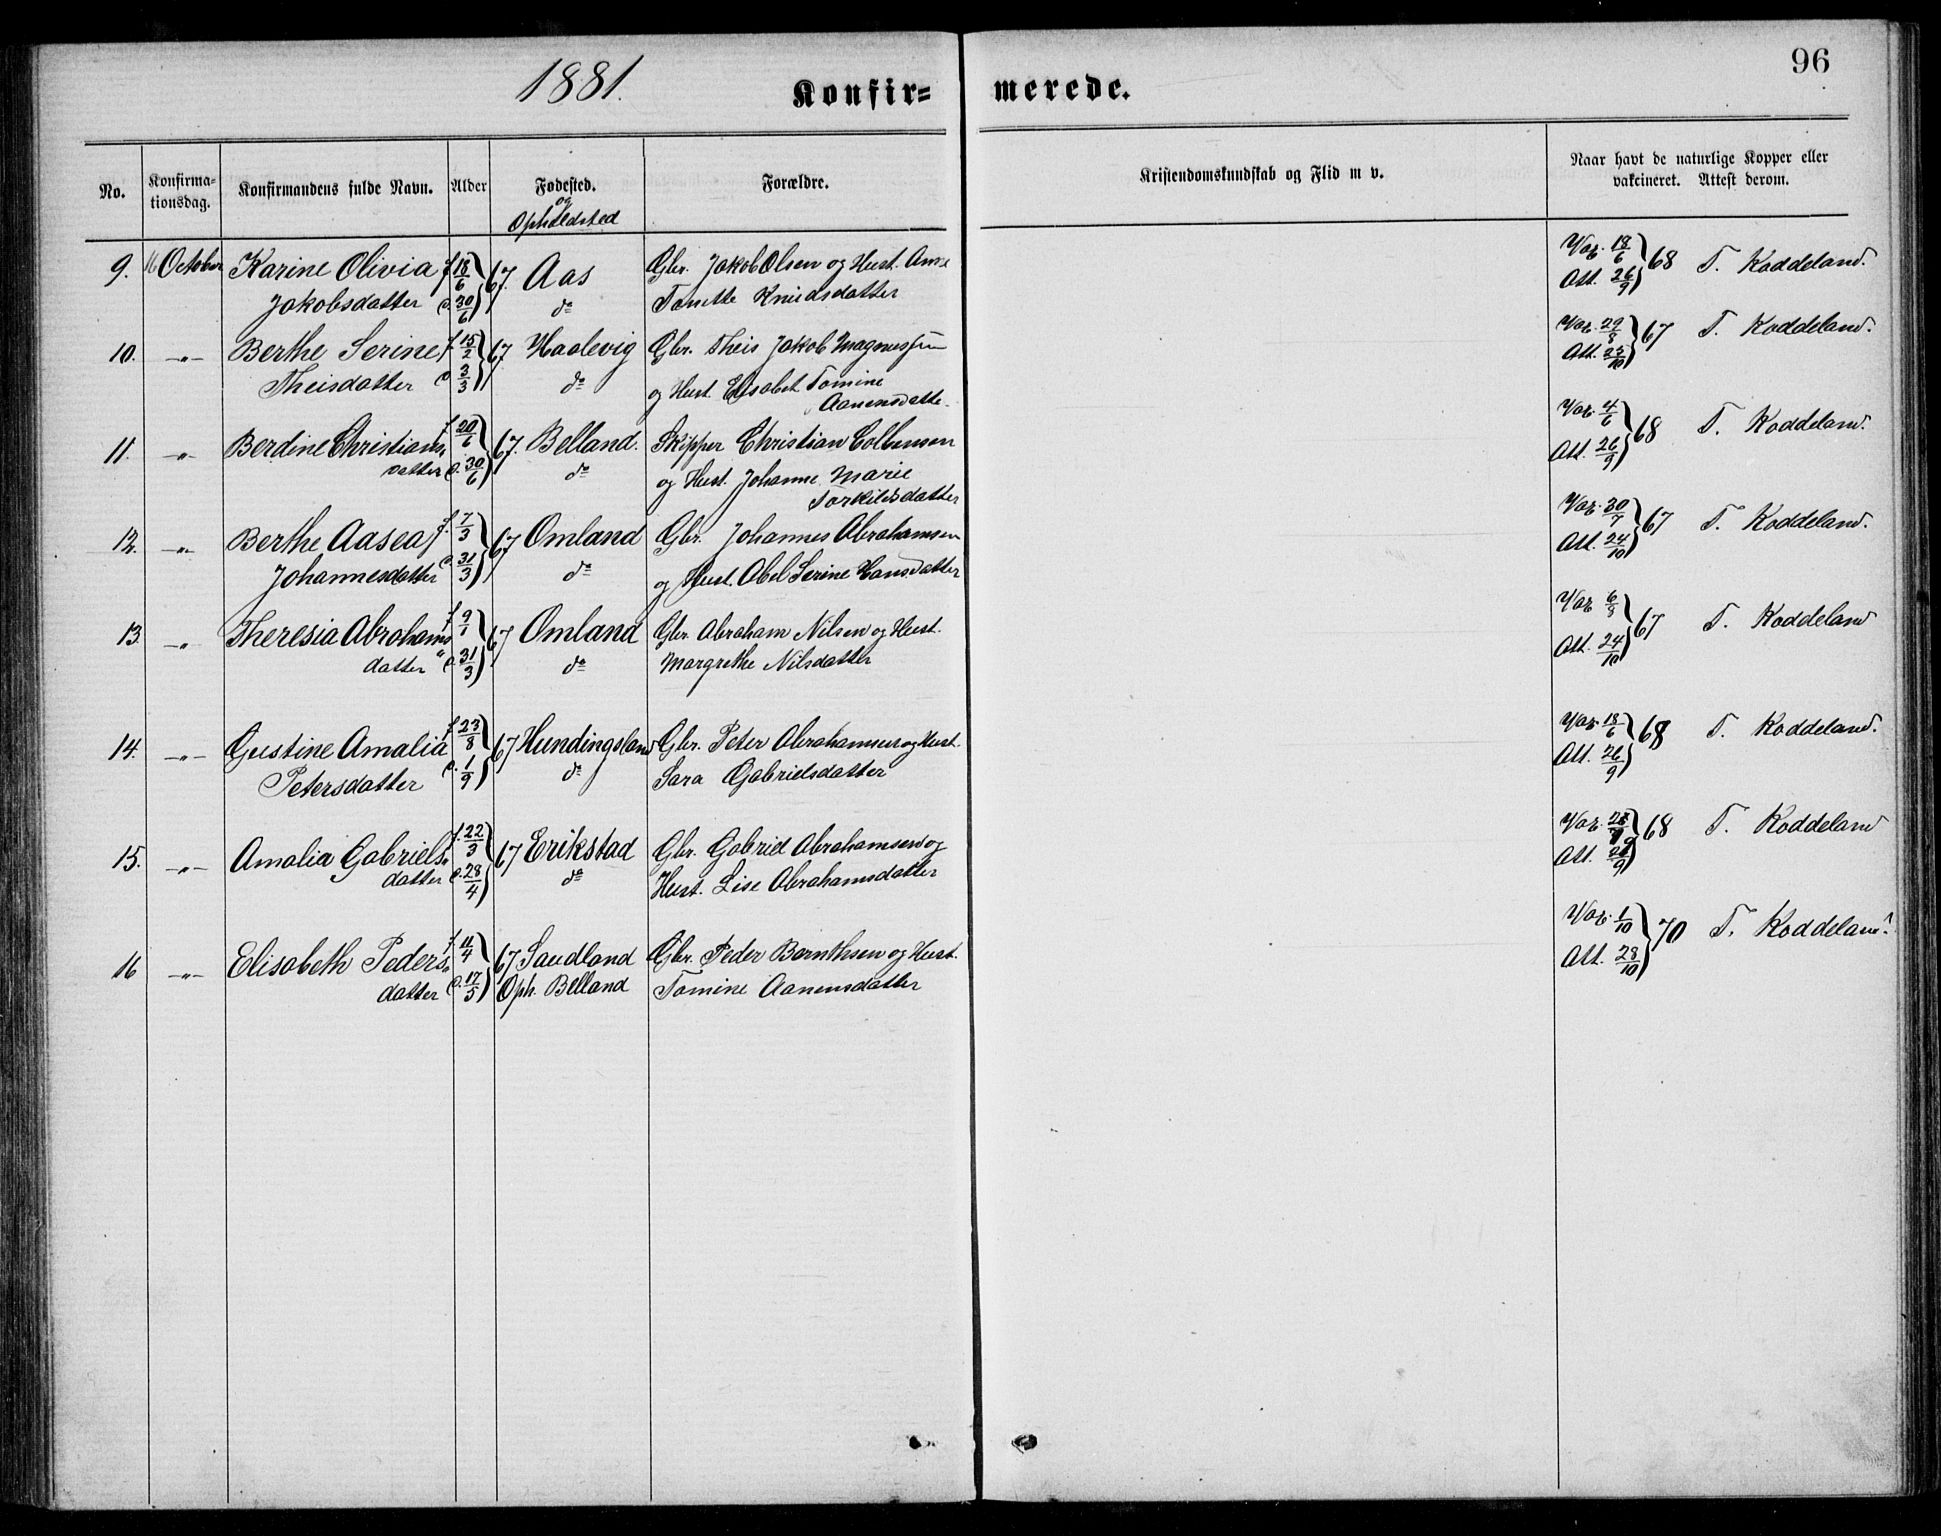 1881.
Konfir=
merede.
96
No.
Konfirma-
tionsdag.
Konfirmandens fulde Navn.
Alder
Fødested.
og
Opholdsted
Forældre.
Kristendomskundskab og Flid m v.
Naar havt de naturlige Kopper eller
vakcineret. Attest derom.
9. 16 October Karine Olivia f. 18/6 67. Aas Gbr. Jakob Olsen og Hust. Anne Vac. 18/6 68 T. Koddeland.
Jakobsdatter d. 30/6 do Tonette Knudsdatter Att. 26/9
10. -"- Berthe Serine f. 15/2 67. Haalevig Gbr. Theis Jakob Magnussen Vac. 29/8 67 T. Koddeland.
Theisdatter d. 3/3 do og Hust. Elisabet Tomine Att. 25/10
Aanensdatte.
11. -"- Berdine Christians, f. 20/6 67. Belland. Skipper Christian Colbensen Vac. 4/6 68 T. Koddeland.
datter d. 30/6 do og Hust. Johanne Marie Att. 26/9
Torkildsdatter
12. " Berthe Aasea f. 7/3 67 Omland Gbr. Johannes Abrahamsen Vac. 30/7 67 T. Koddeland.
Johannesdatter d. 31/3 do og Hust. Abel Serine Hansdatter Att. 24/10
13. -"- Theresia Abrahams f. 9/1 67 Omland Gbr. Abraham Nilsen og Hust. Vac 6/8 67 T. Koddeland
datter d. 31/3 do Margrethe Nilsdatter Att. 24/10
14. -"- Gustine Amalia f. 23/8 67 Hundingsland Gbr. Peter Abrahamsen og Hust. Vac. 18/6 68 T. Koddeland.
Petersdatter d. 1/9 do Sara Gabrielsdatter Att. 26/9
15. -"- Amalia Gabriels, f. 22/3 67 Erikstad Gbr. Gabriel Abrahamsen og Vac. 68 T. Koddeland
datter d. 28/4 do Hust. Lise Abrahamsdatter Att.
16 -"- Elisabeth Peders, f. 11/4 67 Saudland Gbr. Peder Bernthsen og Hust. Vac. 1/10 70 T. Koddeland.
datter d. 17/5 Oph. Belland Tomine Aanensdatter Att. 28/10